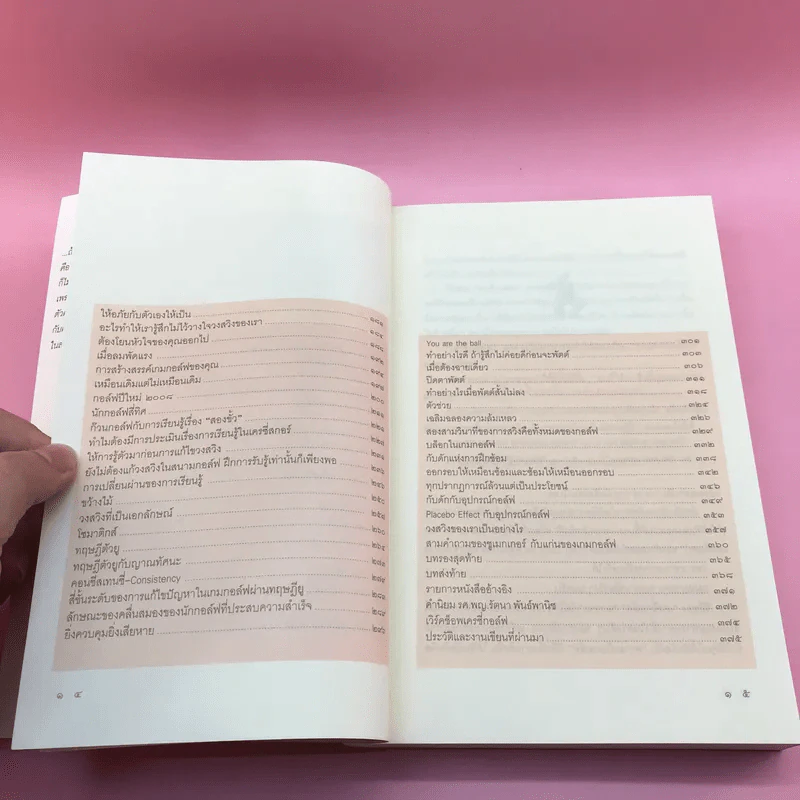 ให้อภัยกับตัวเองให้เป็น ๑๘๑
อะไรทำให้เรารู้สึกไม่ไว้วางใจวงสวิงของเรา ๑๘๔
ต้องโยนหัวใจของคุณออกไป
เมื่อลมพัดแรง
การสร้างสรรค์เกมกอล์ฟของคุณ
เหมือนเดิมแต่ไม่เหมือนเดิม
กอล์ฟปีใหม่ ๒๐๐๘
นักกอล์ฟสี่ทิศ
ก๊วนกอล์ฟกับการเรียนรู้เรื่อง "สองขั้ว"
ทำไมต้องมีการประเมินเรื่องการเรียนรู้ในเครซี่สกอร์
ให้การรู้ตัวมาก่อนการแก้ไขวงสวิง
ยังไม่ต้องแก้วงสวิงในสนามกอล์ฟ ฝึกการรับรู้เท่านั้นก็เพียงพอ
การเปลี่ยนผ่านของการเรียนรู้
ขว้างไม้
วงสวิงที่เป็นเอกลักษณ์
โซมาติกส์
ทฤษฎีตัวยู
ทฤษฎีตัวยูกับญาณทัศนะ
คอนซิสเทนซี่-Consistency
สี่ขั้นระดับของการแก้ไขปัญหาในเกมกอล์ฟผ่านทฤษฎียู
ลักษณะของคลื่นสมองของนักกอล์ฟที่ประสบความสำเร็จ
ยิ่งควบคุมยิ่งเสียหาย
๑ ๔
You are the ball ๓๐๑
ทำอย่างไรดี ถ้ารู้สึกไม่ค่อยดีก่อนจะพัตต์ ๓๐๓
เมื่อต้องฉายเดี่ยว ๓๐๖
ปิดตาพัตต์ ๓๑๑
ทำอย่างไรเมื่อพัตต์สั้นไม่ลง ๓๑๘
ตัวช่วย ๓๒๔
เฉลิมฉลองความล้มเหลว ๓๒๖
สองสามวินาทีของการสวิงคือทั้งหมดของกอล์ฟ ๓๒๙
บล็อกในเกมกอล์ฟ ๓๓๒
กับดักแห่งการฝึกซ้อม ๓๓๘
ออกรอบให้เหมือนซ้อมและซ้อมให้เหมือนออกรอบ ๓๔๒
ทุกปรากฏการณ์ล้วนแต่เป็นประโยชน์ ๓๔๖
กับดักกับอุปกรณ์กอล์ฟ ๓๔๙
Placebo Effect กับอุปกรณ์กอล์ฟ ๓๕๓
วงสวิงของเราเป็นอย่างไร ๓๕๗
สามคำถามของชูเมกเกอร์ กับแก่นของเกมกอล์ฟ ๓๖๐
บทรองสุดท้าย ๓๖๕
บทส่งท้าย ๓๖๘
รายการหนังสืออ้างอิง ๓๗๑
คำนิยม รศ.พญ.รัตนา พันธ์พานิช ๓๗๒
เวิร์คช็อพเครซี่กอล์ฟ ๓๗๔
ประวัติและงานเขียนที่ผ่านมา ๓๗๕
๑ ๕